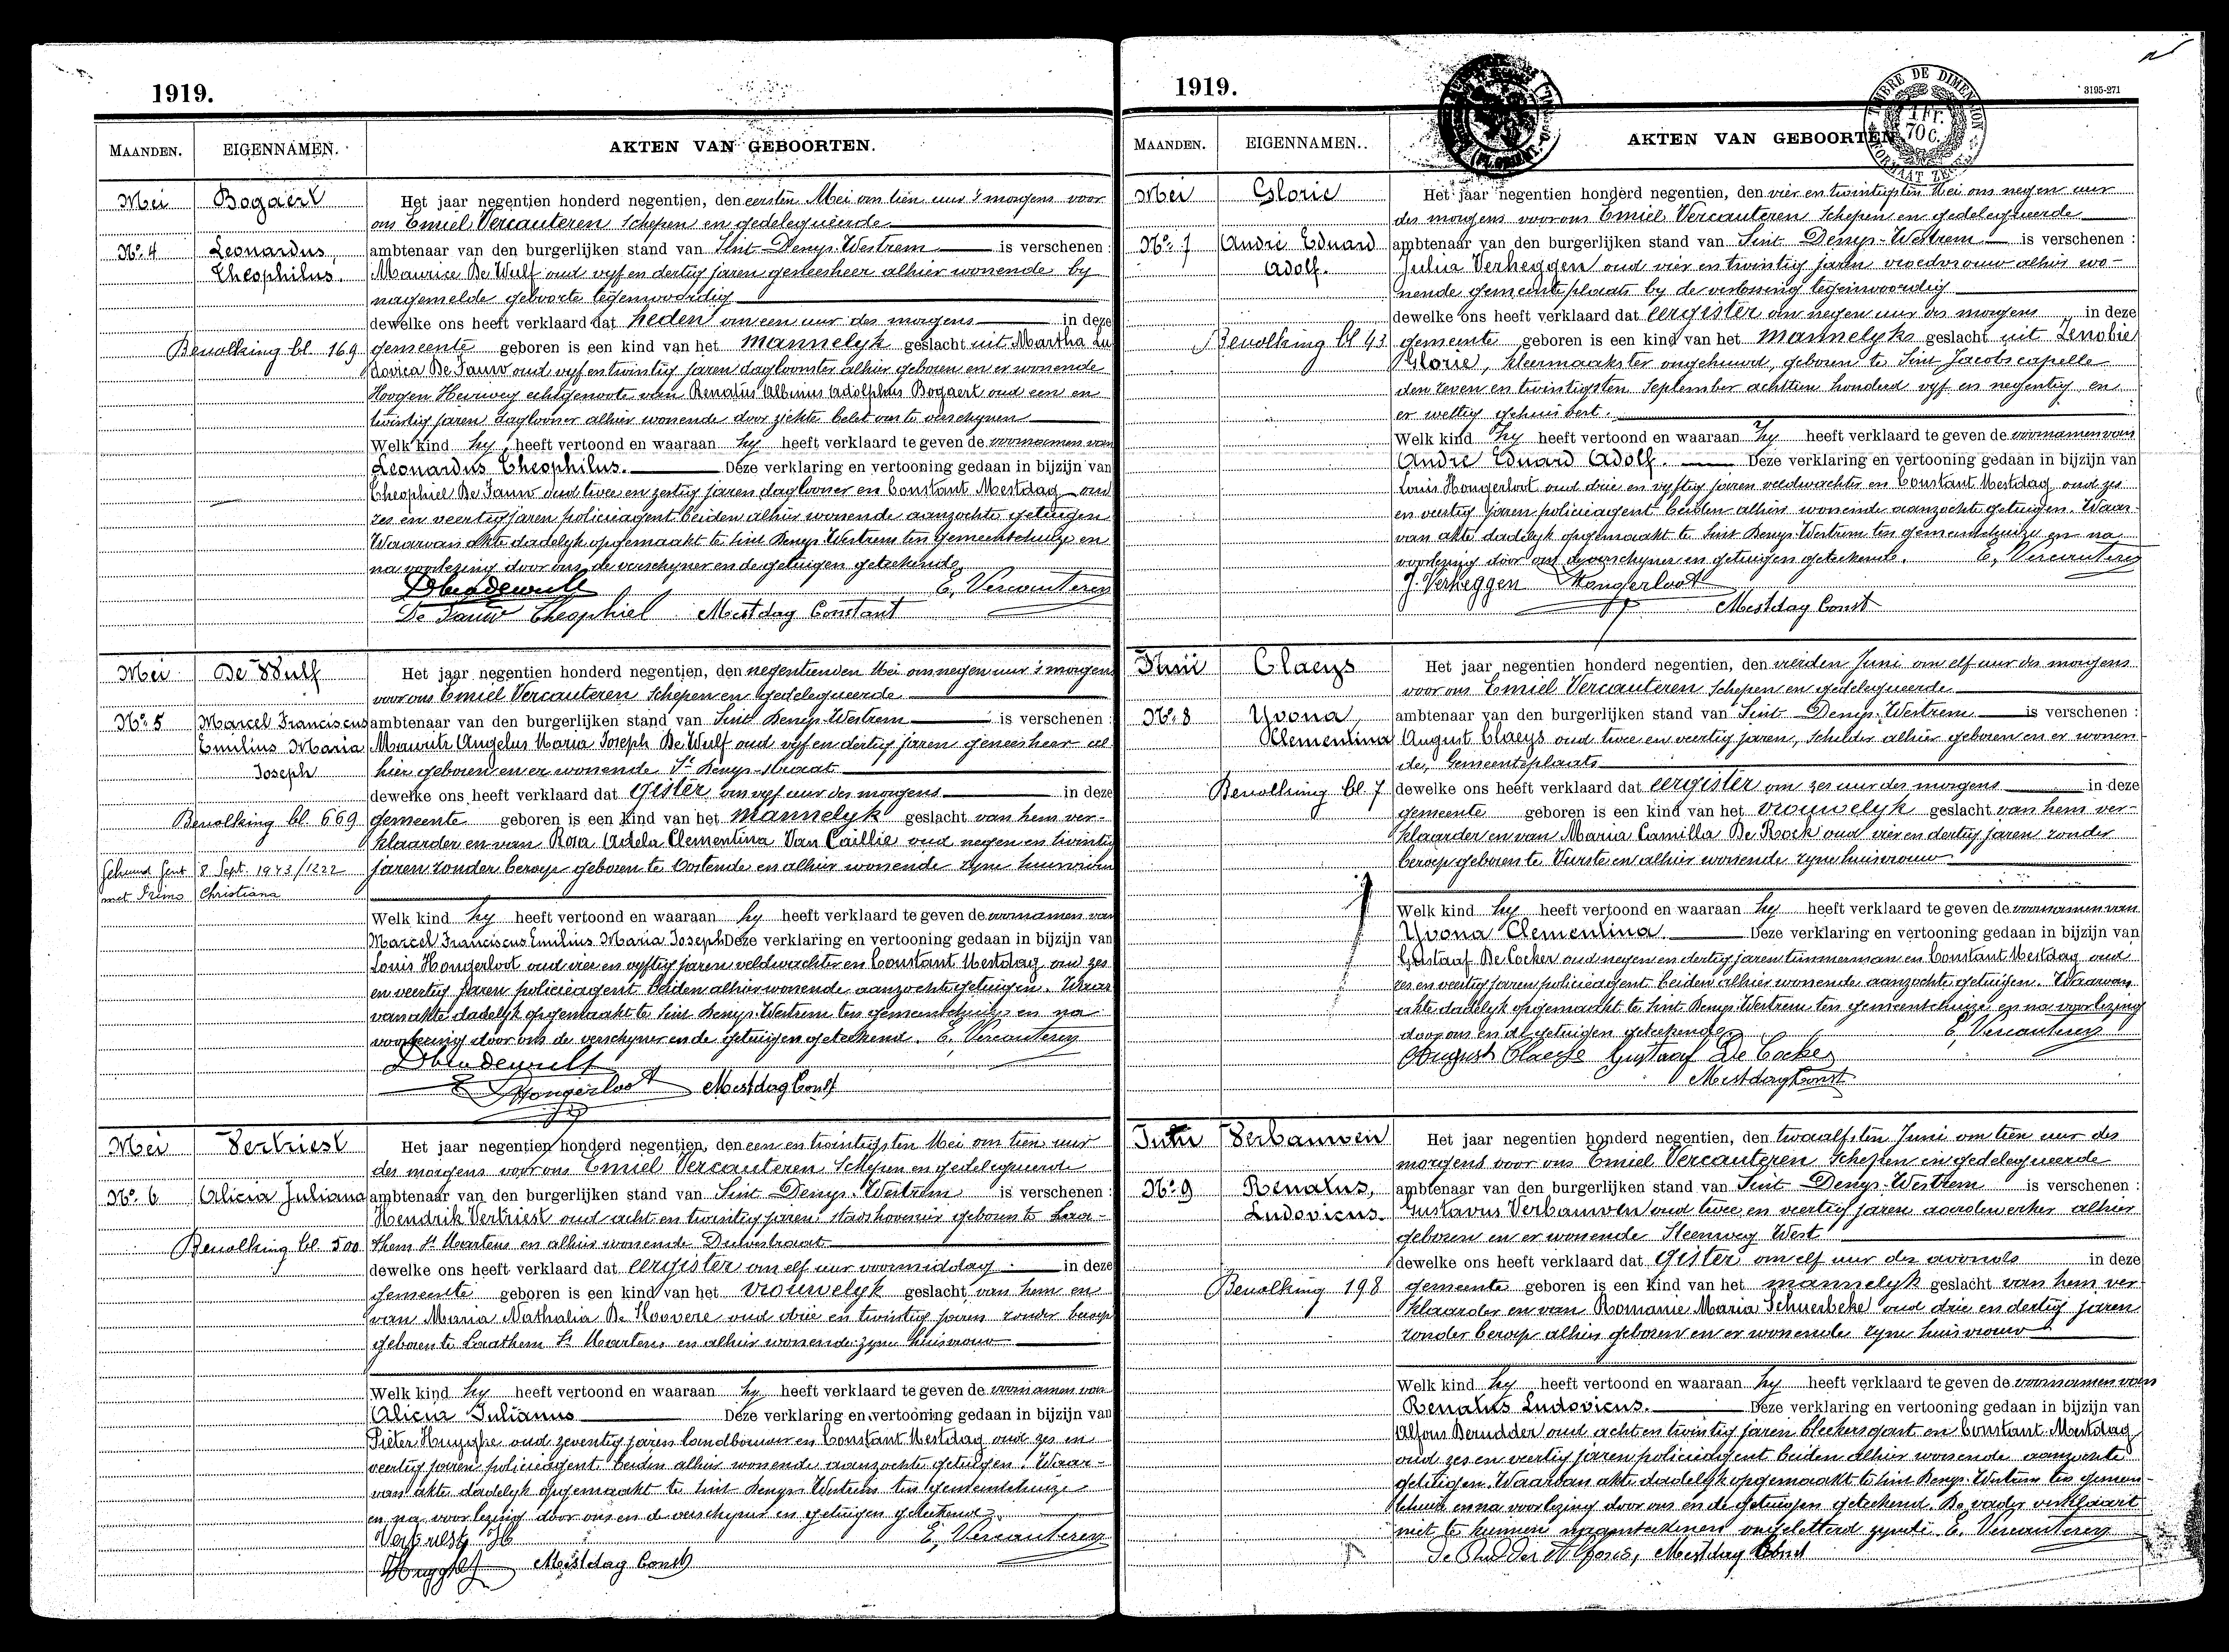 1919.
MAANDEN.
EIGENNAMEN.
AKTEN VAN GEBOORTEN.
Mei
Bogaert
Nº 4
Leonardus,
Theophilus.
Bevolking bl. 169
Het jaar negentien honderd negentien, den eersten Mei om tien uur 's morgens voor
ons Emiel Vercauteren Schepen en gedelegueerde
ambtenaar van den burgerlijken stand van Sint-Denys-Westrem is verschenen :
Maurice De Wulf oud vyf en dertig jaren geneesheer alhier wonende by
nagemelde geboorte tegenwoordig
dewelke ons heeft verklaard dat heden om een uur des morgens in deze
gemeente geboren is een kind van het mannelyk geslacht uit Martha Lu
dovica De Fauw oud vyf en twintig jaren dagloonster alhier geboren en er wonende
Hoogen Heirweg echtgenoote van Renatus Albinus Adolphus Bogaert oud een en
twintig jaren daglooner alhier wonende door ziekte belet om te verschynen
Welk kind hy heeft vertoond en waaraan hy heeft verklaard te geven de voornamen van
Leonardus Theophilus. Deze verklaring en vertooning gedaan in bijzijn van
Theophiel De Fauw oud twee en zestig jaren daglooner en Constant Mestdag oud
zes en veertig jaren policieagent beiden alhier wonende aanzochte getuigen
Waarvan akte dadelyk opgemaakt te Sint Denys-Westrem ten gemeentehuize en
na voorlezing door ons de verschyner en de getuigen geteekend
E. Vercauteren
De Fauw Theophiel Mestdag Constant
Mei
De Wulf
Nº 5
Marcel Franciscus
Emilius Maria
Joseph
Bevolking bl. 669
Gehuwd Gent 8 Sept. 1943/1222
met Primo Christiana
Het jaar negentien honderd negentien, den negentienden Mei om negen uur 's morgens
voor ons Emiel Vercauteren Schepen en gedelegueerde
ambtenaar van den burgerlijken stand van Sint Denys-Westrem is verschenen :
Maurits Angelus Maria Joseph De Wulf oud vyf en dertig jaren geneesheer al
hier geboren en er wonende St Denys-straat
dewelke ons heeft verklaard dat gister om vyf uur des morgens in deze
gemeente geboren is een kind van het mannelyk geslacht van hem ver-
klaarder en van Rosa Adela Clementina Van Caillie oud negen en twintig
jaren zonder beroep geboren te Oostende en alhier wonende zyne huisvrouw
Welk kind hy heeft vertoond en waaraan hy heeft verklaard te geven de voornamen van
Marcel Franciscus Emilius Maria Joseph Deze verklaring en vertooning gedaan in bijzijn van
Louis Hongerloot oud vier en vyftig jaren veldwachter en Constant Mestdag oud zes
en veertig jaren policieagent beiden alhier wonende aanzochte getuigen. Waar
van akte dadelyk opgemaakt te Sint Denys-Westrem ten gemeentehuize en na
voorlezing door ons de verschyner en de getuigen geteekend. E. Vercauteren
Hongerloot Mestdag Const
Mei
Vertriest
Nº 6
Alicia Juliana
Bevolking bl. 500
Het jaar negentien honderd negentien, den een en twintigsten Mei om tien uur
des morgens voor ons Emiel Vercauteren Schepen en gedelegueerde
ambtenaar van den burgerlijken stand van Sint Denys-Westrem is verschenen :
Hendrik Vertriest oud acht en twintig jaren, stadshovenier geboren te Laa-
them St Martens en alhier wonende Duivestraat
dewelke ons heeft verklaard dat eergister om elf uur voormiddag in deze
gemeente geboren is een kind van het vrouwelyk geslacht van hem en
van Maria Nathalia De Hoovere oud drie en twintig jaren zonder beroep
geboren te Laathem St Martens en alhier wonende zyne huisvrouw
Welk kind hy heeft vertoond en waaraan hy heeft verklaard te geven de voornamen van
Alicia Juliana Deze verklaring en vertooning gedaan in bijzijn van
Pieter Huyghe oud zeventig jaren landbouwer en Constant Mestdag oud zes en
veertig jaren policieagent beiden alhier wonende aanzochte getuigen. Waar-
van akte dadelyk opgemaakt te Sint Denys-Westrem ten gemeentehuize
en na voorlezing door ons en de verschyner en getuigen geteekend
Vertriest H E. Vercauteren
Huyghe Mestdag Const
1919.
3195-271
TIMBRE DE DIMENSION
1 fr.
70 c.
MAANDEN.
EIGENNAMEN.
AKTEN VAN GEBOORTEN
Mei
Glorie
Nº 7
André Eduard
Adolf.
Bevolking bl 43
Het jaar negentien honderd negentien, den vier en twintigsten Mei om negen uur
des morgens voor ons Emiel Vercauteren Schepen en gedelegueerde
ambtenaar van den burgerlijken stand van Sint Denys-Westrem is verschenen :
Julia Verheggen oud vier en twintig jaren vroedvrouw alhier wo-
nende gemeenteplaats by de verlossing tegenwoordig
dewelke ons heeft verklaard dat eergister om negen uur des morgens in deze
gemeente geboren is een kind van het mannelyks geslacht uit Zenobie
Glorie, kleermaakster ongehuwd, geboren te Sint Jacobscapelle
den zeven en twintigsten September achttien honderd vyf en negentig en
er wettig gehuisvest.
Welk kind zy heeft vertoond en waaraan zy heeft verklaard te geven de voornamen van
André Eduard Adolf. Deze verklaring en vertooning gedaan in bijzijn van
Louis Hongerloot oud drie en vyftig jaren veldwachter en Constant Mestdag oud zes
en veertig jaren policieagent beiden alhier wonende aanzochte getuigen. Waar-
van akte dadelyk opgemaakt te Sint Denys-Westrem ten gemeentehuize en na
voorlezing door ons de verschyner en getuigen geteekend. E. Vercauteren
J. Verheggen Hongerloot
Mestdag Const
Juni
Claeys
Nº 8
Yvona,
Klementina
Bevolking bl. 7
Het jaar negentien honderd negentien, den vierden Juni om elf uur des morgens
voor ons Emiel Vercauteren Schepen en gedelegueerde
ambtenaar van den burgerlijken stand van Sint Denys-Westrem is verschenen :
August Claeys oud twee en veertig jaren, Schilder alhier geboren en er wonen-
de, Gemeenteplaats
dewelke ons heeft verklaard dat eergister om zes uur des morgens in deze
gemeente geboren is een kind van het vrouwelyk geslacht van hem ver-
klaarder en van Maria Camilla De Rock oud vier en dertig jaren zonder
beroep geboren te Vurste en alhier wonende zyne huisvrouw
Welk kind hy heeft vertoond en waaraan hy heeft verklaard te geven de voornamen van
Yvona Clementina. Deze verklaring en vertooning gedaan in bijzijn van
Gustaaf De Cocker oud negen en dertig jaren timmerman en Constant Mestdag oud
zes en veertig jaren policieagent beiden alhier wonende aanzochte getuigen. Waarvan
akte dadelyk opgemaakt te Sint Denys-Westrem ten gemeentehuize en na voorlezing
door ons en de getuigen geteekend E. Vercauteren
August Claeys Gustaaf De Cocker
Mestdag Const
Juni
Verbauwen
Nº 9
Renatus,
Ludovicus
Bevolking 198
Het jaar negentien honderd negentien, den twaalfsten Juni om tien uur des
morgens voor ons Emiel Vercauteren Schepen en gedelegueerde
ambtenaar van den burgerlijken stand van Sint Denys-Westrem is verschenen :
Gustavus Verbauwen oud twee en veertig jaren aardewerker alhier
geboren en er wonende Steenweg West
dewelke ons heeft verklaard dat Gister om elf uur des avonds in deze
gemeente geboren is een kind van het mannelyk geslacht van hem ver-
klaarder en van Romanie Maria Schuerbeke oud drie en dertig jaren
zonder beroep alhier geboren en er wonende zyne huisvrouw
Welk kind hy heeft vertoond en waaraan hy heeft verklaard te geven de voornamen van
Renatus Ludovicus. Deze verklaring en vertooning gedaan in bijzijn van
Alfons Derudder oud acht en twintig jaren bleekersgast en Constant Mestdag
oud zes en veertig jaren policieagent beiden alhier wonende aanzochte
getuigen. Waarvan akte dadelyk opgemaakt te Sint Denys-Westrem ten gemeen-
tehuize en na voorlezing door ons en de getuigen geteekend. De vader verklaart
niet te kunnen naamteekenen ongeletterd zynde. E. Vercauteren
De Rudder Alfons, Mestdag Const